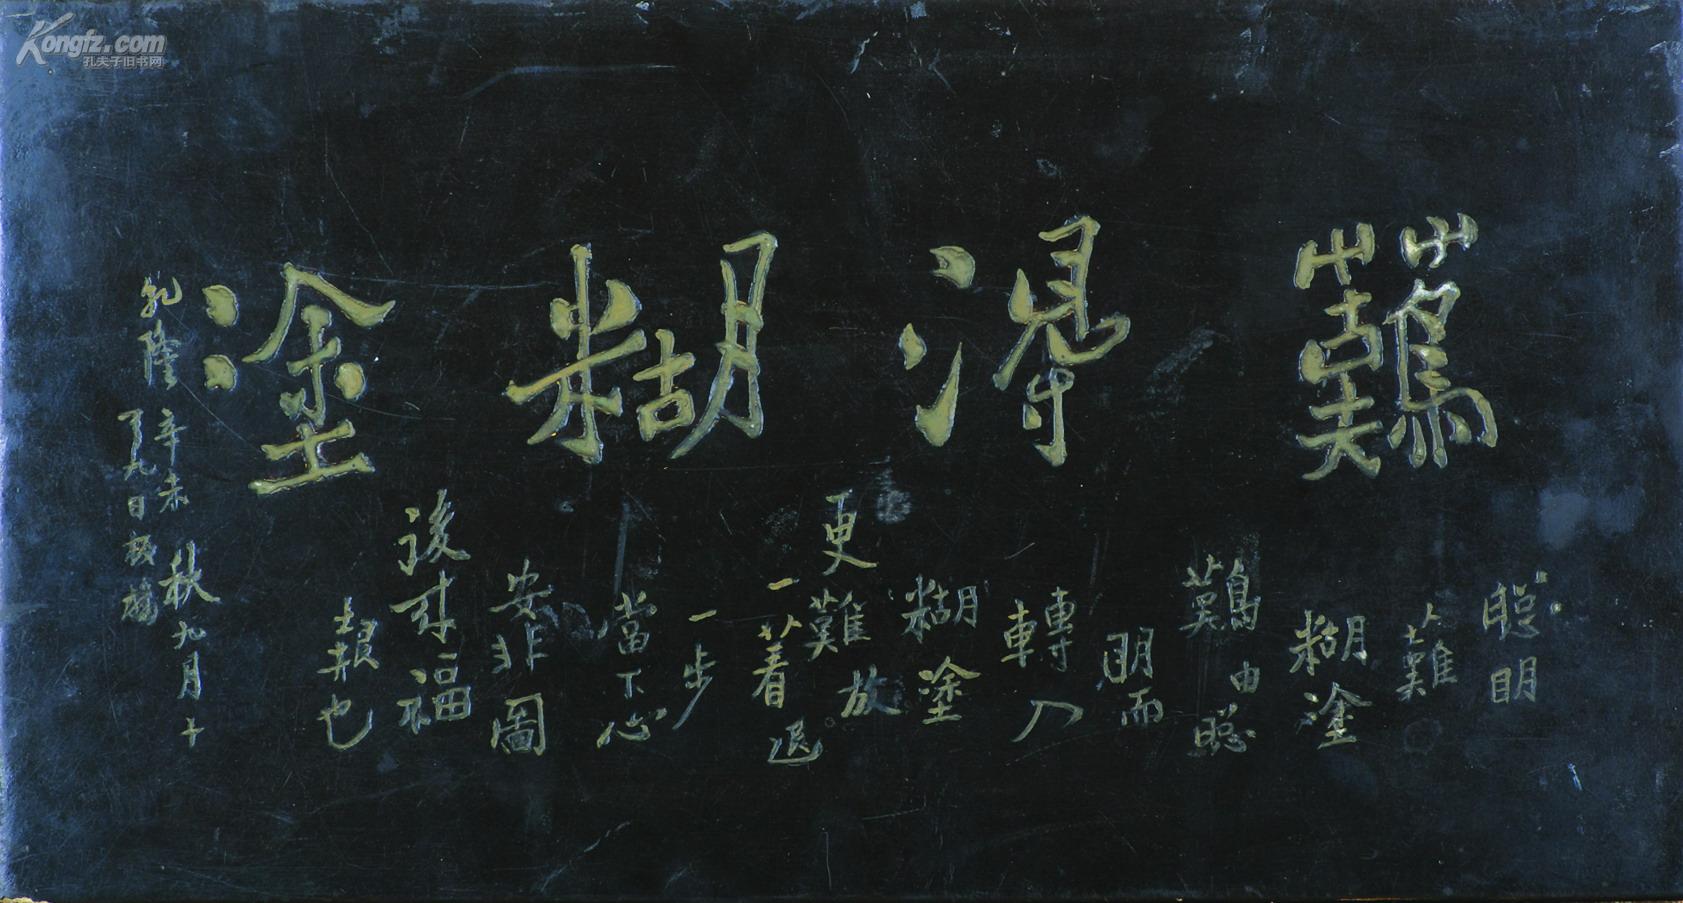 難得糊塗
聰明
難
糊塗
難由聰
明而
轉入
糊塗
更難放
一着退
一步
當下心
安非圖
後來福
報也
乾隆辛未秋九月十
有九日板橋
Kongfz.com
孔夫子旧书网